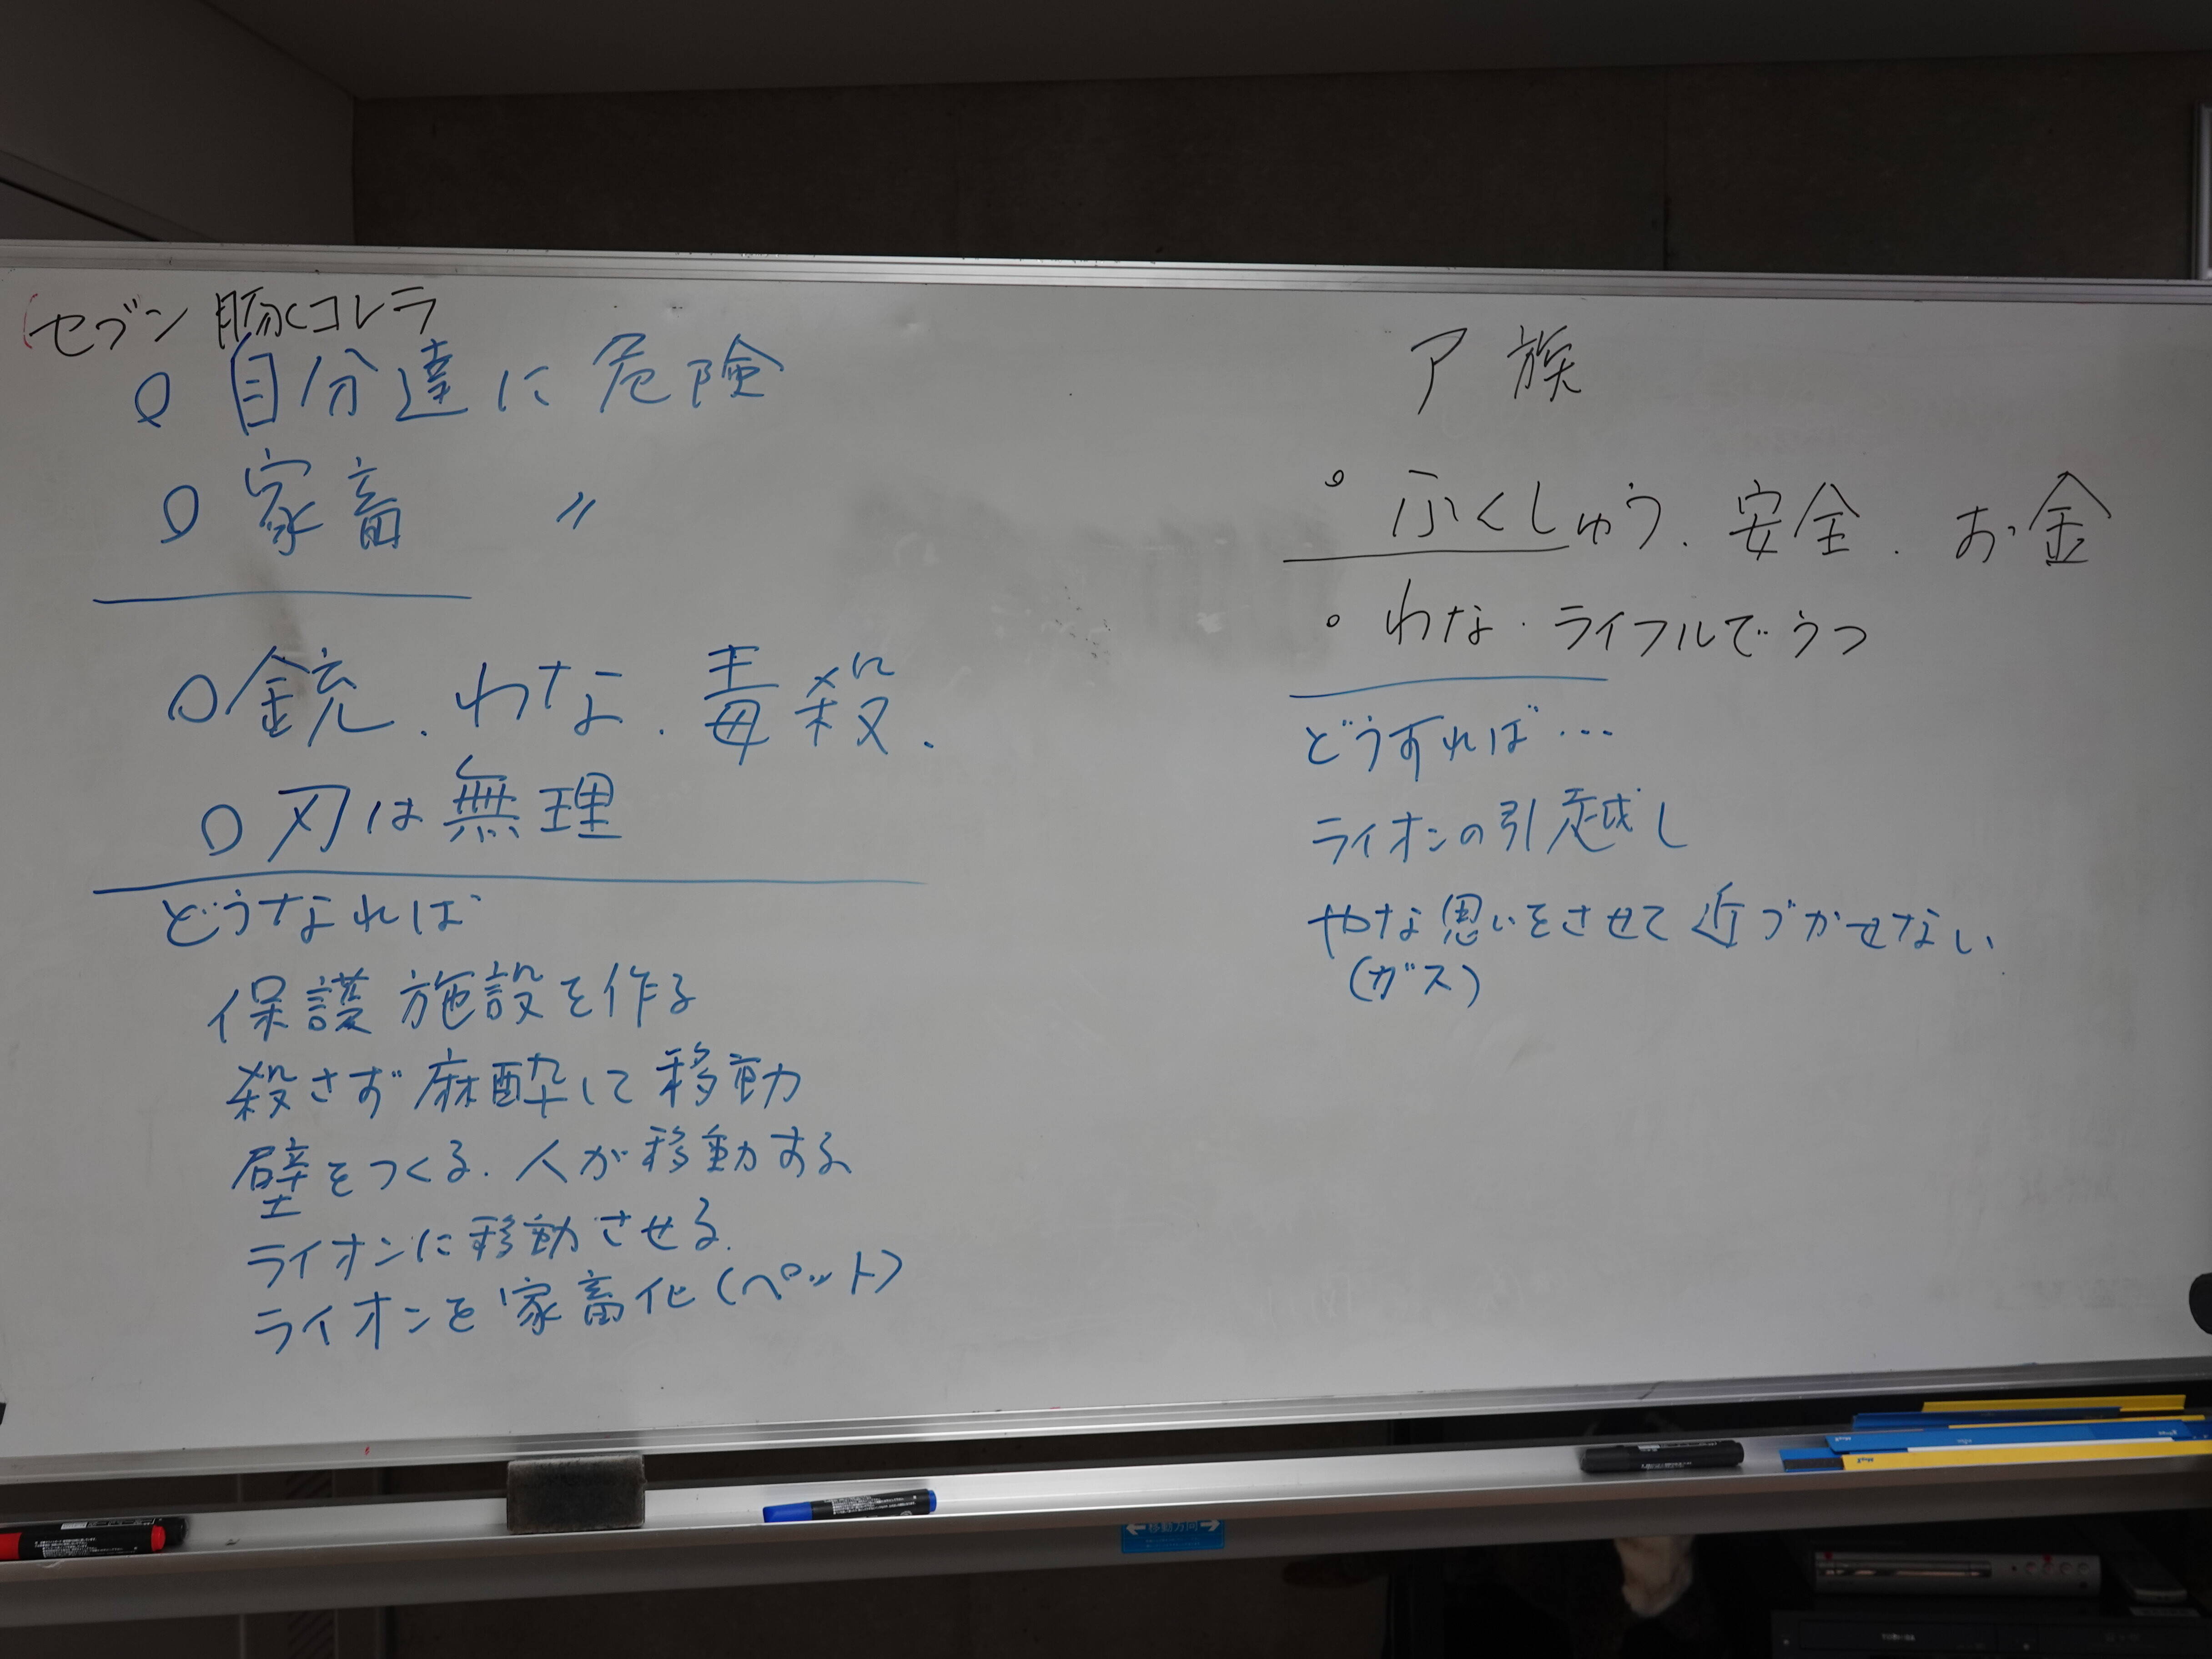 セブン 豚コレラ
○ 自分達に危険
○ 家畜 〃
○ 銃.わな.毒殺.
○ 刃は無理
どうなれば
保護施設を作る
殺さず麻酔して移動
壁をつくる.人が移動する
ライオンに移動させる.
ライオンを家畜化(ペット)
ア族
○ ふくしゅう.安全.お金
○ わな.ライフルでうつ
どうすれば…
ライオンの引越し
やな思いをさせて近づかせない
(ガス)
←移動方向→
TOSHIBA